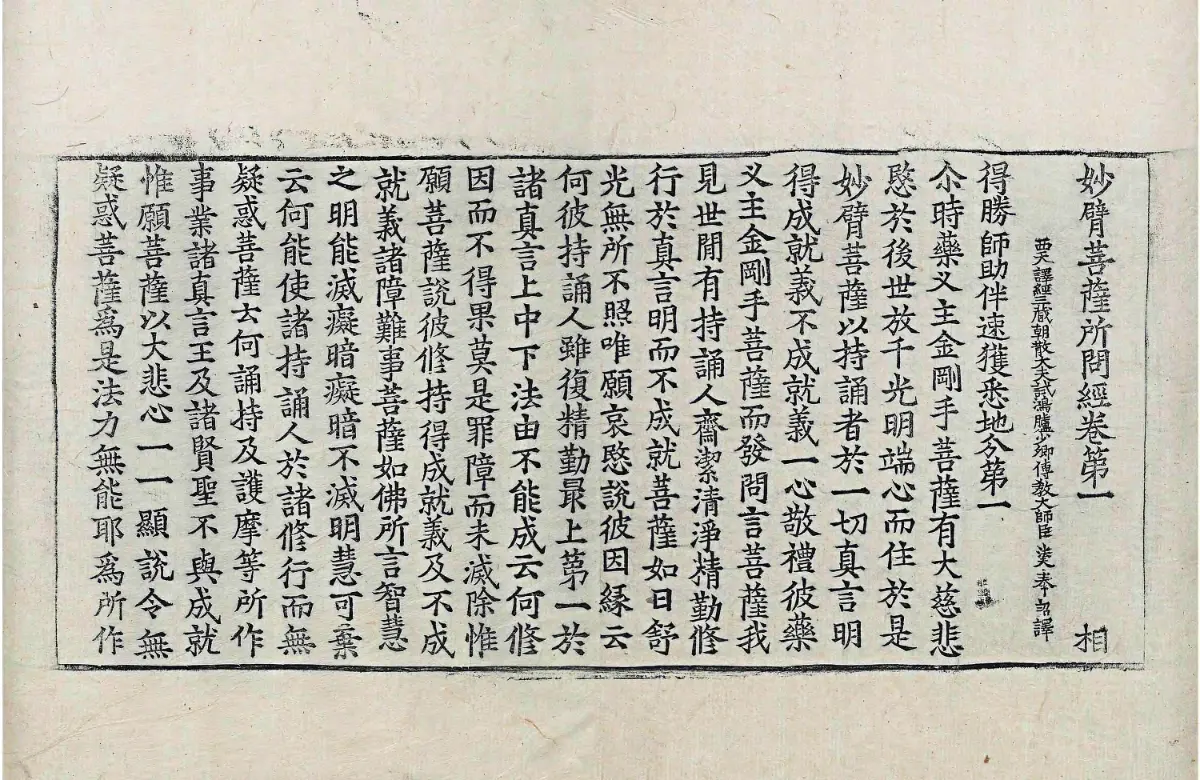 妙臂菩薩所問經卷第一 相
西天譯經三藏朝散大夫試鴻臚少卿傳教大師臣法天奉 詔譯
得勝師助伴速獲悉地分第一
尒時藥叉主金剛手菩薩有大慈悲
愍於後世放千光明端心而住於是
妙臂菩薩以持誦者於一切真言明
得成就義不成就義一心敬禮彼藥
叉主金剛手菩薩而發問言菩薩我
見世閒有持誦人齋潔清淨精勤修
行於真言明而不成就菩薩如日舒
光無所不照唯願哀愍說彼因緣云
何彼持誦人雖復精勤最上第一於
諸真言上中下法由不能成云何修
因而不得果莫是罪障而未滅除惟
願菩薩說彼修持得成就義及不成
就義諸障難事菩薩如佛所言智慧
之明能滅癡暗癡暗不滅明慧可棄
云何能使諸持誦人於諸修行而無
疑惑菩薩云何誦持及護摩等所作
事業諸真言王及諸賢聖不與成就
惟願菩薩以大悲心一一顯說令無
疑惑菩薩為是法力無能耶為所作